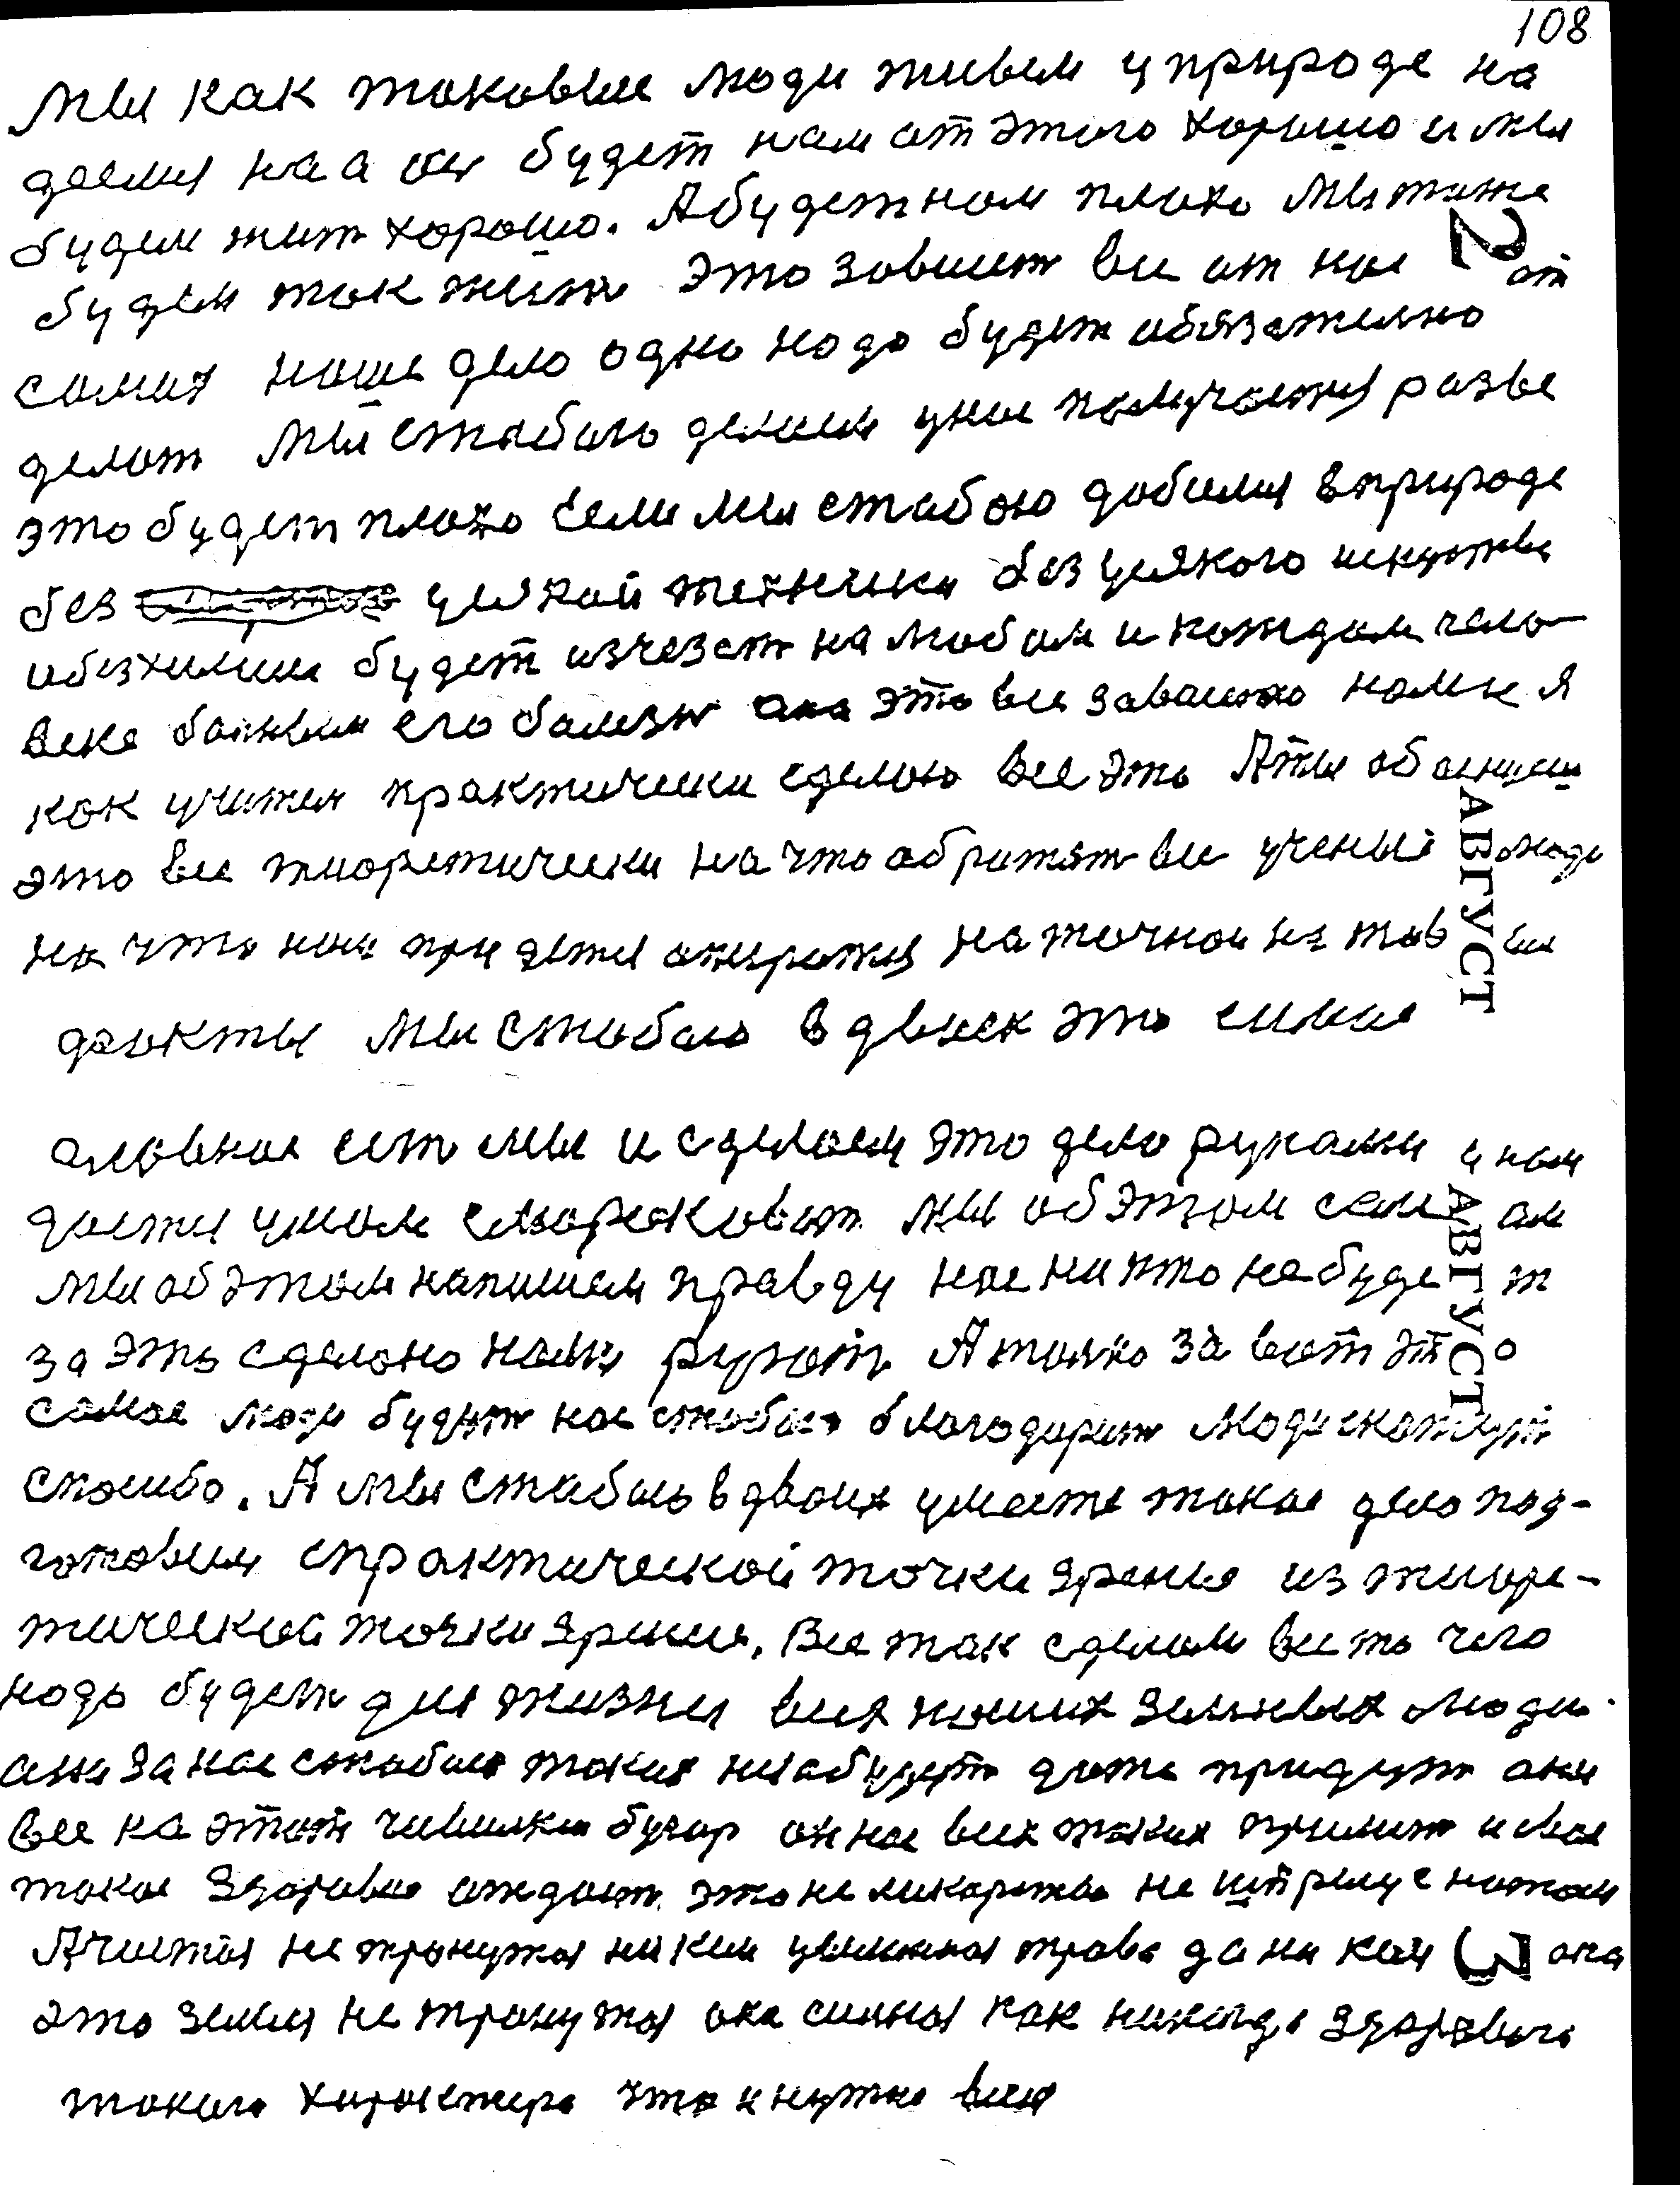 108
мы как таковые люди живем у природе на
деемся на а он будет нам от этого хорошо и мы
будем жит хорошо. А будет нам плохо мы тоже
2
будем так жить это зависит все от нас от
самих наше дело одно надо будет обязателно
делат мы стобою делаем унас получается разве
это будет плохо если мы стобою добемся в природе
без усякой техники без усякого искуства
и без химии будет изчезат на любом и каждом чело-
веке болным его болезн она это все завасит нами я
как учител практически сделаю все это А ты об
это все тиоретически на что обритят все ученые люди
на что ним придется опиратся на точнои не тов
АВГУСТ
факты мы стобою вдвоех это
главное ест мы и сделаем это дело руками и нам
дается умом смораковат мы об этом сами
мы об этом напишем правду нас никто не буде т
за это сделано нами ругать А толко за вот это
АВГУСТ
самое люди будут нас стобою благодарит люди скажут
спасибо. А мы стобою вдвоих уместе такое дело под-
готовим спрактической точки зрения из тиоре-
тической точки зрения. Все так сделаем все то чего
надо будет для жизни всех наших земных люди
они за нас стобою таких незабудут даже придут они
все на этот чивилкин бугор он нас всех таких примит и свое
такое здоровие отдаст. это неликарства не штрыцс
А чистая не тронутая ни кем увлажная трава да ни кем она
3
это земля не тронутая она силная как никогда здорового
такого характера что и нужно всем